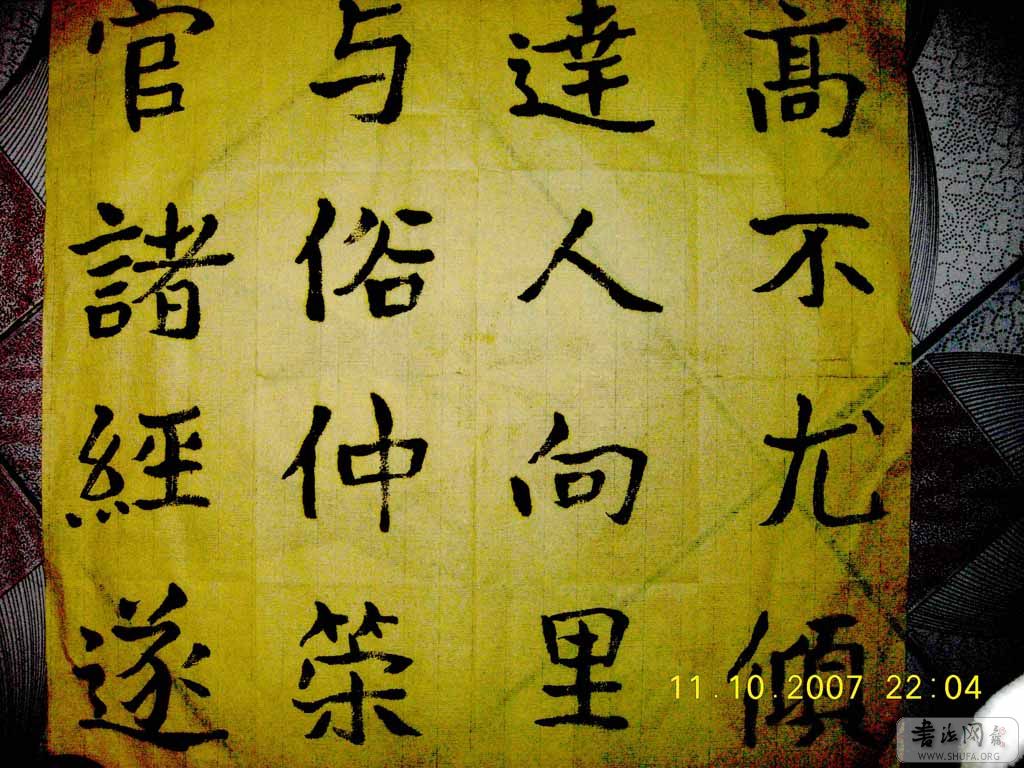 高不尤傾
達人向里
与俗仲荣
官諸經遂
11.10.2007 22:04
書法网
WWW.SHUFA.ORG